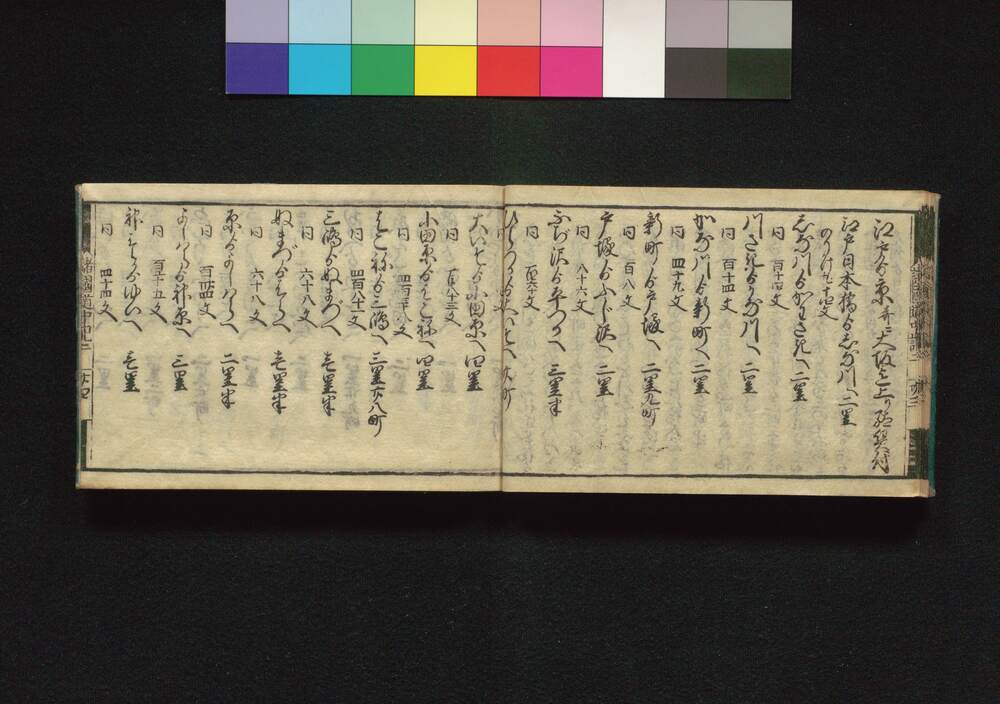 江戸ゟ京并ニ大坂迄上り
江戸日本橋ゟしな川へ 二里
のりかけ九十四文
しな川ゟかわさきへ 二里半
同 百十四文
川さきゟかな川へ 二里半
同 百十四文
かな川ゟ新町へ 二里
同 四十九文
新町ゟ戸塚へ 二里九町
同 百八文
戸塚ゟふじ沢へ 二里
同 八十六文
ふじ沢ゟ平つかへ 三里半
同 百六十文
ひらつかゟ大いそへ 廿六町
大いそゟ小田原へ 四里
同 百八十三文
小田原ゟはこ祢へ 四里
同 四百三十八文
はこ祢ゟ三嶋へ 三里廿八町
同 四百八十一文
三嶋ゟぬまづへ 壱里半
同 六十八文
ぬまづゟはらへ 壱里半
同 六十八文
原ゟよしハらへ 二里半
同 百二十四文
よしハらゟ神原へ 三里
同 百十五文
神はらゟゆいへ 壱里
同 四十四文
諸國道中記二 廿四